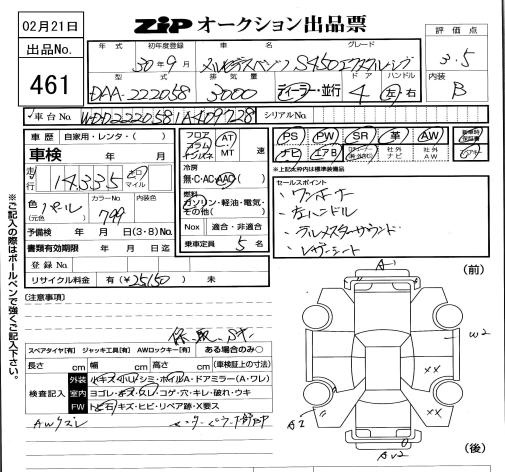 02月21日
ZIP オークション出品票
出品No.
461
評価点
3.5
内装
B
年式 初年度登録 車名 グレード
30年9月 メルセデスベンツ S450エクスクルーシブ
型式 排気量 ドア ハンドル
DAA-222058 3000 ディーラー・並行 4 左 右
車台No. WDD2220581A409728 シリアルNo.
車歴 自家用・レンタ・( )
車検 年 月
走行 14,335 キロ マイル
色(元色) パール カラーNo. 799 内装色
予備検 年 月 日(3・8)No.
書類有効期限 年 月 日迄
登録No.
リサイクル料金 有(¥25150) 未
フロア コラム インパネ AT MT 速
冷房 無・C・AC・AAC
燃料 ガソリン・軽油・電気・その他( )
Nox 適合・非適合
乗車定員 5 名
PS PW SR 革 AW
ナビ エアB 社外ナビ 社外AW
※上記太枠内は標準装備品
セールスポイント
・ワンオーナー
・左ハンドル
・ブルメスターサウンド
・レザーシート
[注意事項]
保・取、
スペアタイヤ[有] ジャッキ工具[有] AWロックキー[有] ある場合のみ○
長さ cm 幅 cm 高さ cm (車検証上の寸法)
検査記入
外装 小キズ・小凹・シミ・ホイルA・ドアミラー(A・ワレ)
室内 ヨゴレ・キズ・スレ・コゲ・穴・キレ・破れ・ウキ
FW トビ石・キズ・ヒビ・リペア跡・X要ス
AWキズレ
※ご記入の際はボールペンで強くご記入下さい。
(前)
A1
W2
XX
XX
A2
(後)